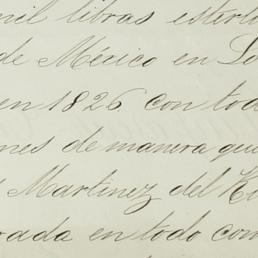 mil libras esterl
de México en Lo
en 1826. con tod
nes de manera que
Martinez del R
rada en todo com